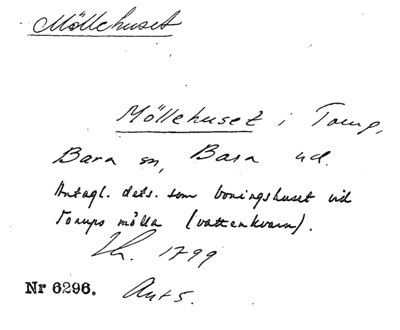 Möllehuset
Möllehuset i Torup,
Bara sn, Bara hd.
Antagl. dets. som boningshuset vid
Torups mölla (vattenkvarn).
1799
Nr 6296.